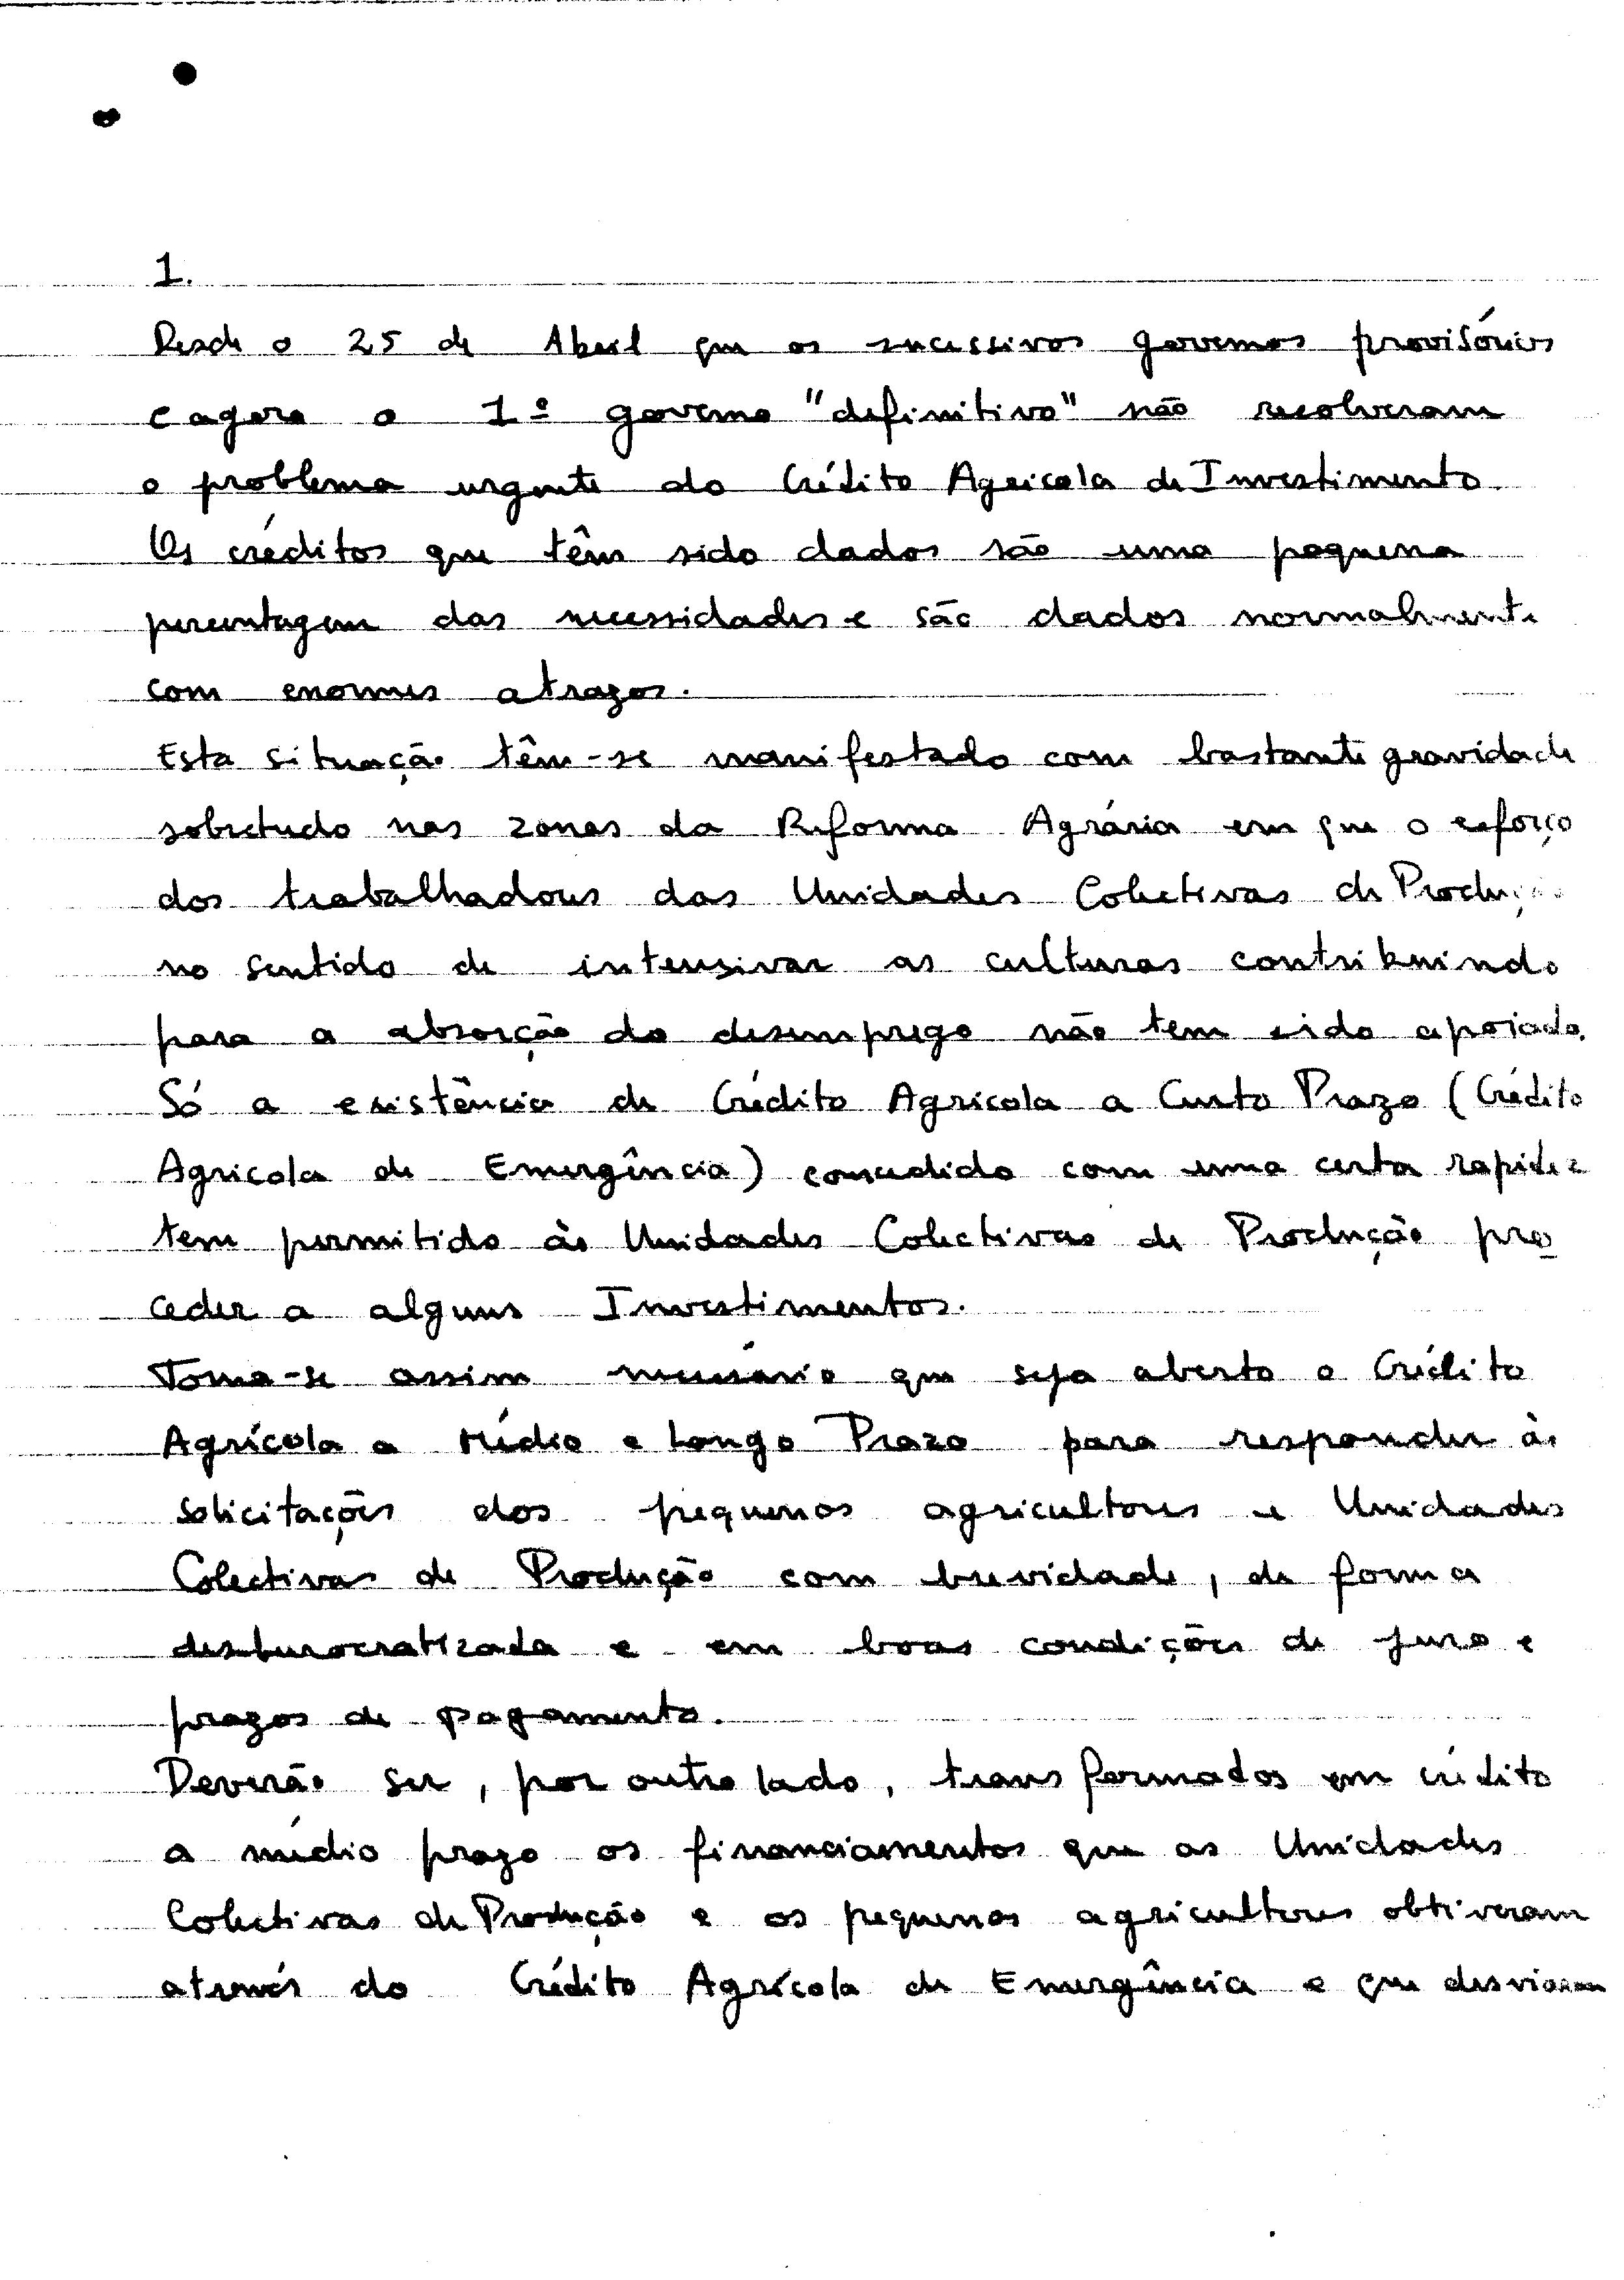 1.
Desde o 25 de Abril que os sucessivos governos provisórios
e agora o 1º governo "definitivo" não resolveram
o problema urgente do Crédito Agricola de Investimento.
Os créditos que têm sido dados são uma pequena
percentagem das necessidades e são dados normalmente
com enormes atrazos.
Esta situação têm-se manifestado com bastante gravidade
sobretudo nas zonas da Reforma Agrária em que o esforço
dos trabalhadores das Unidades Colectivas de Produção
no sentido de intensivar as culturas contribuindo
para a absorção do desemprego não tem sido apoiado.
Só a existência de Crédito Agricola a Curto Prazo (Crédito
Agricola de Emergência) concedido com uma certa rapidez
tem permitido às Unidades Colectivas de Produção pro
ceder a alguns Investimentos.
Torna-se assim necessário que seja aberto o Crédito
Agrícola a Médio e Longo Prazo para responder às
solicitações dos pequenos agricultores e Unidades
Colectivas de Produção com brevidade, de forma
desburocratizada e em boas condições de juro e
prazos de pagamento.
Deverão ser, por outro lado, transformados em crédito
a médio prazo os financiamentos que as Unidades
Colectivas de Produção e os pequenos agricultores obtiveram
através do Crédito Agrícola de Emergência e que desviaram